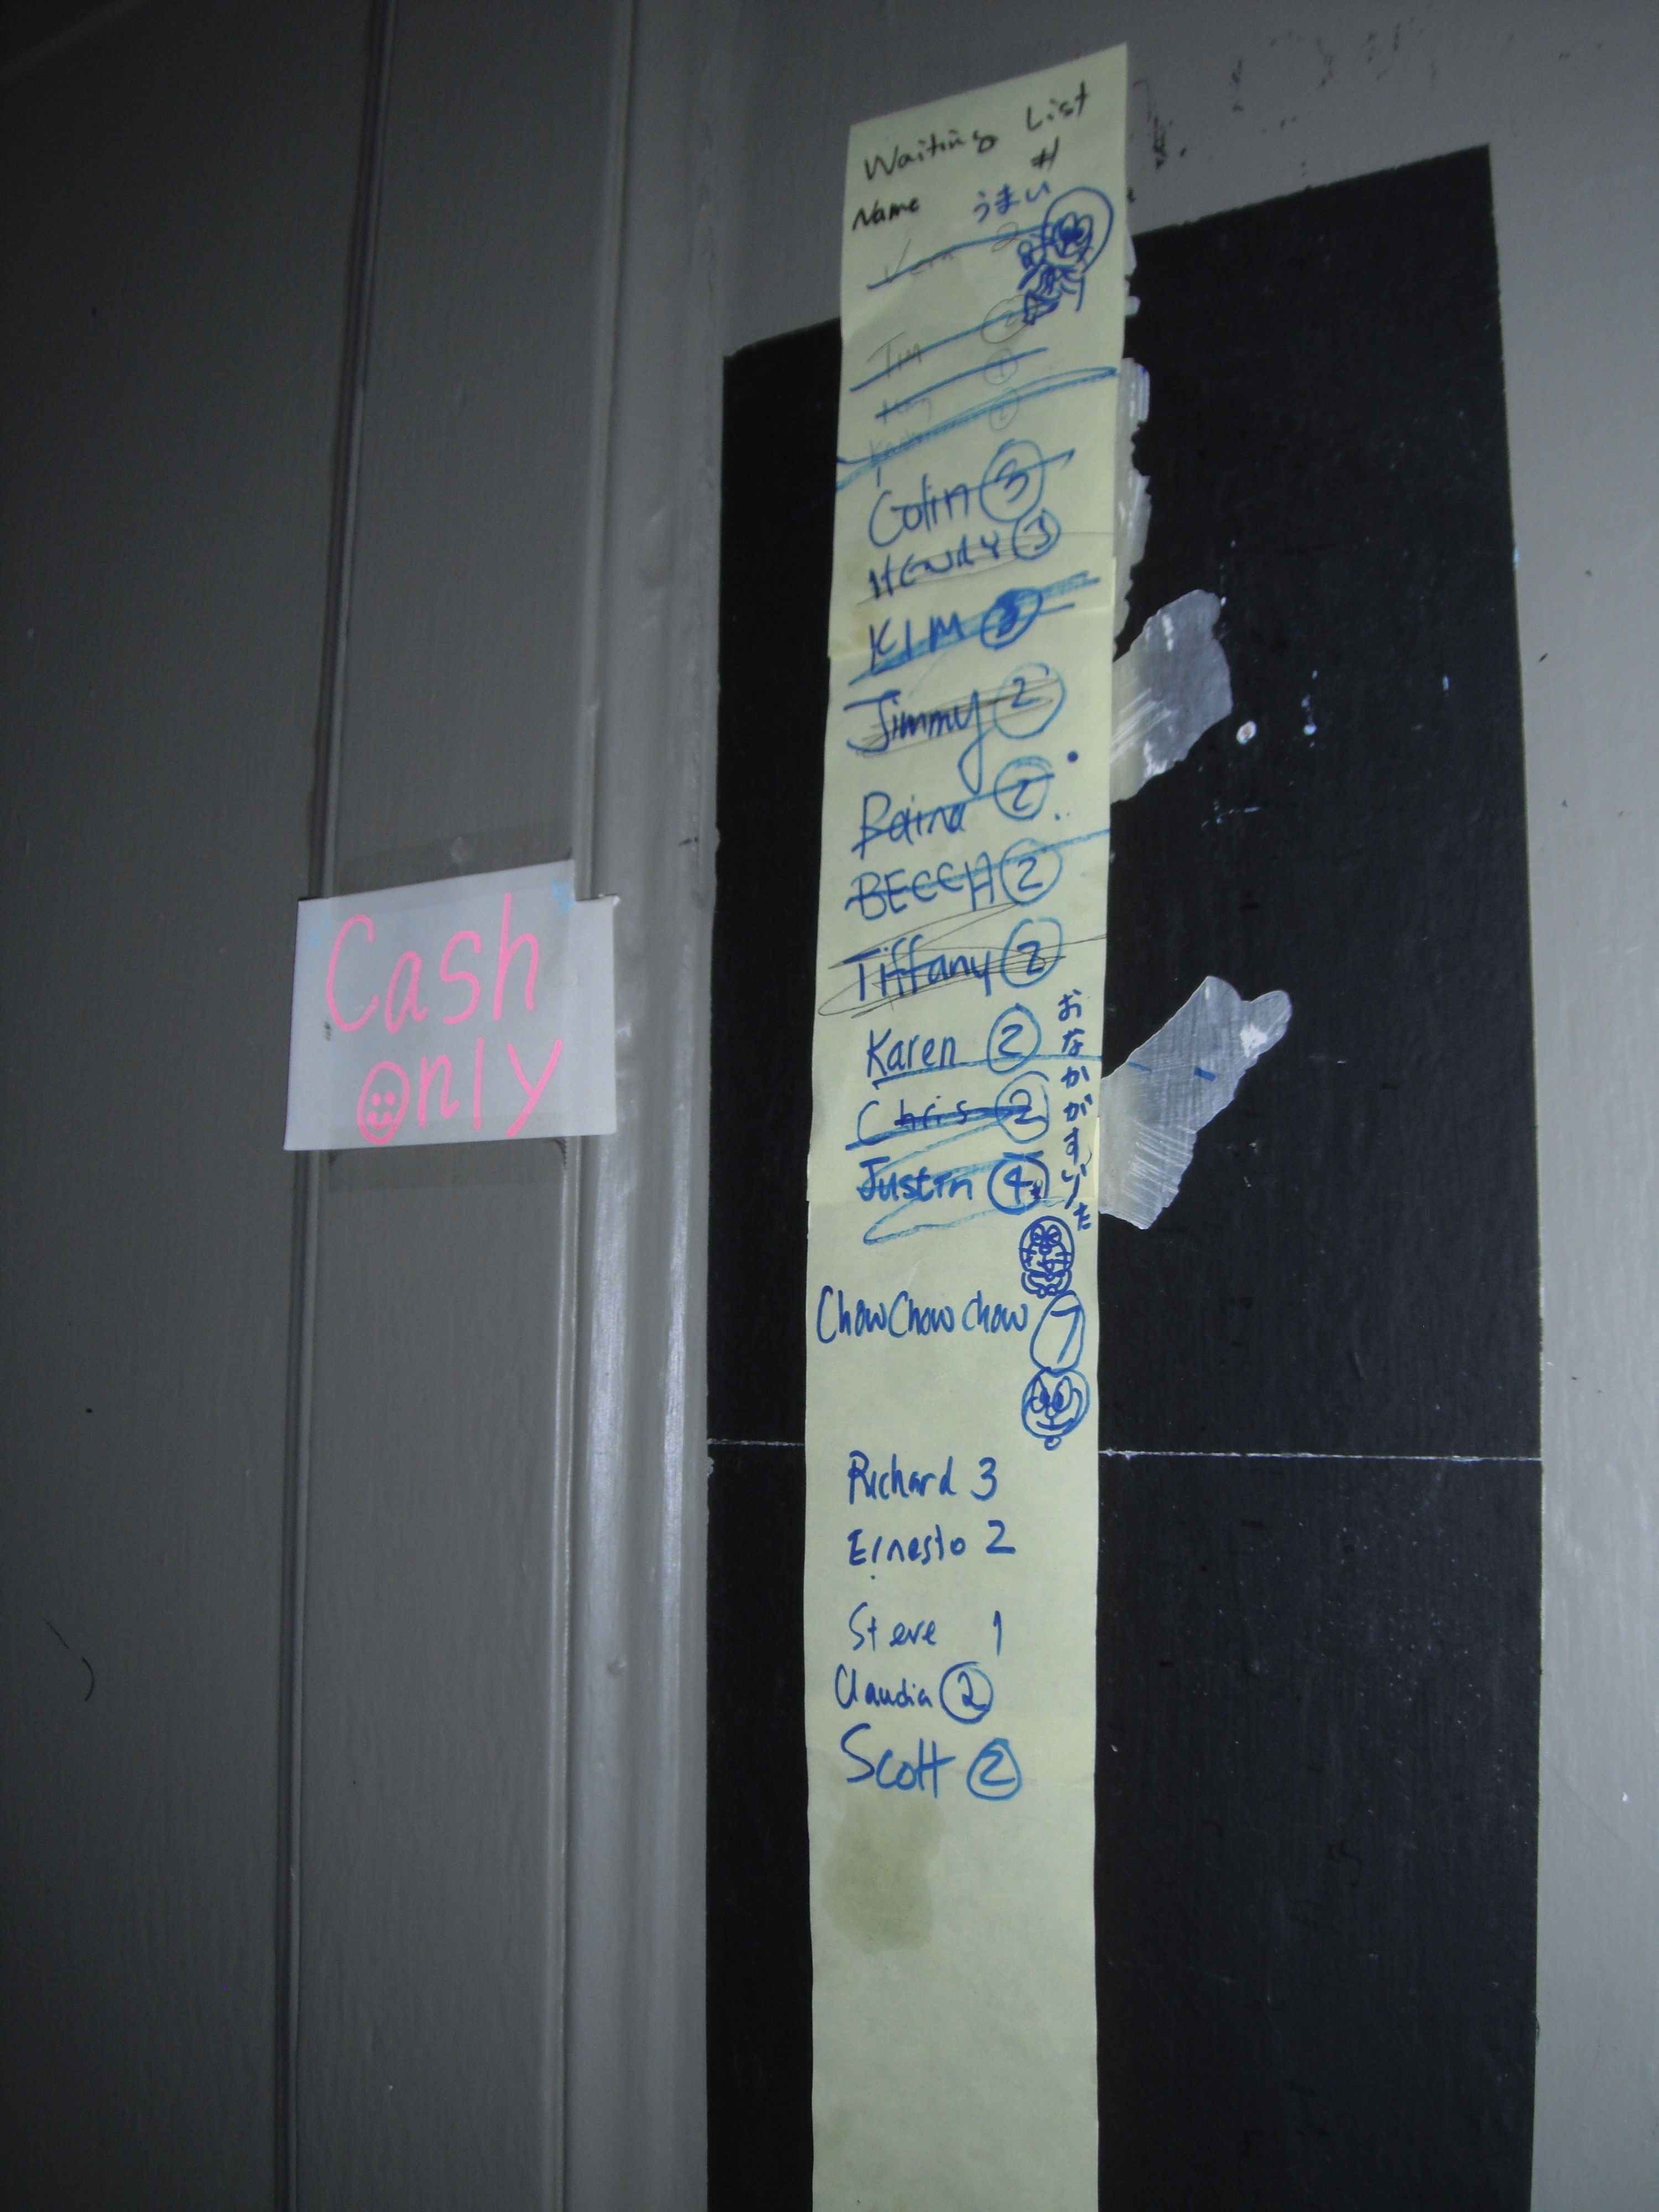 Cash
only
Waiting List
Name #
うまい
Tim 2
1
1
Colin 3
KIM 3
Jimmy 2
Raina 2
BECCA 2
Tiffany 2
Karen 2
おなかがすいた
Chris 2
Justin 4
ChowChowchow 7
Richard 3
Ernesto 2
Steve 1
Claudia 2
Scott 2